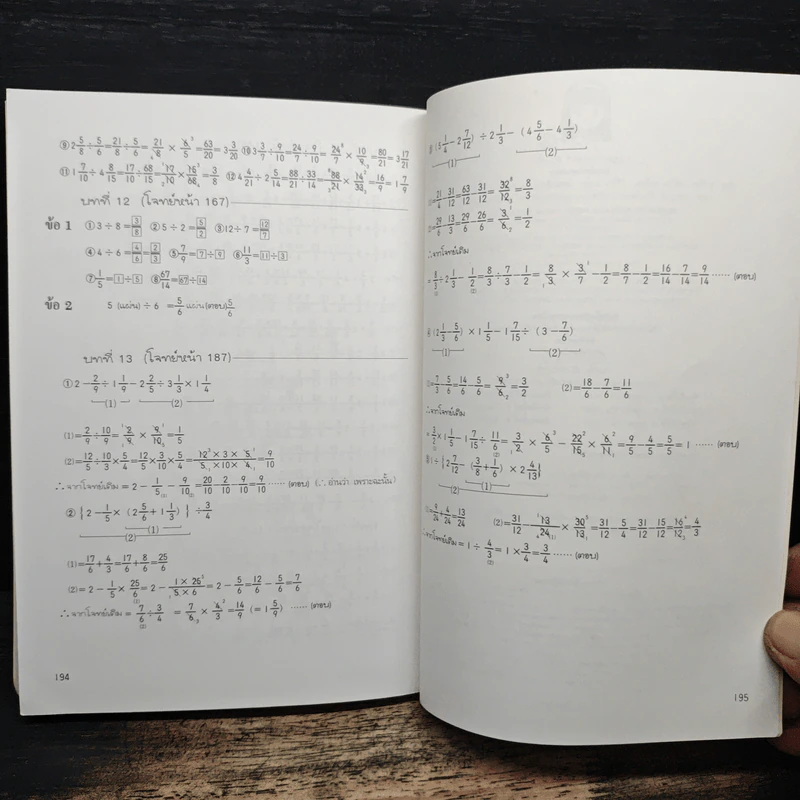 ⑨ 2 5/8 ÷ 5/6 = 21/8 ÷ 5/6 = 21/8 × 6/5 = 63/20 = 3 3/20 ⑩ 3 3/7 ÷ 9/10 = 24/7 ÷ 9/10 = 24/7 × 10/9 = 80/21 = 3 17/21
⑪ 1 7/10 ÷ 4 8/15 = 17/10 ÷ 68/15 = 17/10 × 15/68 = 3/8 ⑫ 4 4/21 ÷ 2 5/14 = 88/21 ÷ 33/14 = 88/21 × 14/33 = 16/9 = 1 7/9
บทที่ 12 (โจทย์หน้า 167)
ข้อ 1 ① 3 ÷ 8 = 3/8 ② 5 ÷ 2 = 5/2 ③ 12 ÷ 7 = 12/7
④ 4 ÷ 6 = 4/6 = 2/3 ⑤ 7/9 = 7 ÷ 9 ⑥ 11/3 = 11 ÷ 3
⑦ 1/5 = 1 ÷ 5 ⑧ 67/14 = 67 ÷ 14
ข้อ 2 5 (แผ่น) ÷ 6 = 5/6 แผ่น (ตอบ) 5/6
บทที่ 13 (โจทย์หน้า 187)
① 2 - 2/9 ÷ 1 1/9 - 2 2/5 ÷ 3 1/3 × 1 1/4
(1) (2)
(1) = 2/9 ÷ 10/9 = 2/9 × 9/10 = 1/5
(2) = 12/5 ÷ 10/3 × 5/4 = 12/5 × 3/10 × 5/4 = 12 × 3 × 5/5 × 10 × 4 = 9/10
∴ จากโจทย์เดิม = 2 - 1/5 (1) - 9/10 (2) = 20/10 - 2/10 - 9/10 = 9/10 ...... (ตอบ) (∴ อ่านว่า เพราะฉะนั้น)
② { 2 - 1/5 × ( 2 5/6 + 1 1/3 ) } ÷ 3/4
(1)
(2)
(1) = 17/6 + 4/3 = 17/6 + 8/6 = 25/6
(2) = 2 - 1/5 × 25/6 (1) = 2 - 1 × 25/5 × 6 = 2 - 5/6 = 12/6 - 5/6 = 7/6
∴ จากโจทย์เดิม = 7/6 (2) ÷ 3/4 = 7/6 × 4/3 = 14/9 (= 1 5/9) ...... (ตอบ)
194
(5 1/4 - 2 7/12) ÷ 2 1/3 - (4 5/6 - 4 1/3)
(1) (2)
= 21/4 - 31/12 = 63/12 - 31/12 = 32/12 = 8/3
= 29/6 - 13/3 = 29/6 - 26/6 = 3/6 = 1/2
∴ จากโจทย์เดิม
= 8/3 ÷ 2 1/3 - 1/2 (2) = 8/3 ÷ 7/3 - 1/2 = 8/3 × 3/7 - 1/2 = 8/7 - 1/2 = 16/14 - 7/14 = 9/14 ...... (ตอบ)
④ (2 1/3 - 5/6) × 1 1/5 - 1 7/15 ÷ (3 - 7/6)
(1) (2)
= 7/3 - 5/6 = 14/6 - 5/6 = 9/6 = 3/2 (2) = 18/6 - 7/6 = 11/6
∴ จากโจทย์เดิม
= 3/2 × 1 1/5 - 1 7/15 ÷ 11/6 (2) = 3/2 × 6/5 - 22/15 × 6/11 = 9/5 - 4/5 = 5/5 = 1 ...... (ตอบ)
1 ÷ { 2 7/12 - ( 3/8 + 1/6 ) × 2 4/13 }
(1)
(2)
= 9/24 + 4/24 = 13/24 (2) = 31/12 - 13/24 (1) × 30/13 = 31/12 - 5/4 = 31/12 - 15/12 = 16/12 = 4/3
∴ จากโจทย์เดิม = 1 ÷ 4/3 (2) = 1 × 3/4 = 3/4 ...... (ตอบ)
195